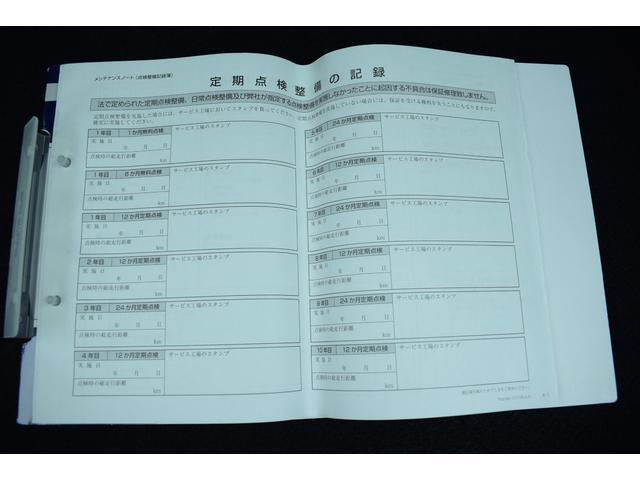 メンテナンスノート(点検整備記録簿)
定期点検整備の記録
法で定められた定期点検整備、日常点検整備及び弊社が指定する点検整備を実施しなかったことに起因する不具合は保証修理致しません。
定期点検整備を実施した場合には、サービス工場においてスタンプを貰ってください。
確実に実施してください。
1年目 1か月無料点検 サービス工場のスタンプ
実施日 年 月 日
点検時の総走行距離 km
1年目 6か月無料点検 サービス工場のスタンプ
実施日 年 月 日
点検時の総走行距離 km
1年目 12か月定期点検 サービス工場のスタンプ
実施日 年 月 日
点検時の総走行距離 km
2年目 12か月定期点検 サービス工場のスタンプ
実施日 年 月 日
点検時の総走行距離 km
3年目 24か月定期点検 サービス工場のスタンプ
実施日 年 月 日
点検時の総走行距離 km
4年目 12か月定期点検 サービス工場のスタンプ
実施日 年 月 日
点検時の総走行距離 km
5年目 24か月定期点検 サービス工場のスタンプ
実施日 年 月 日
点検時の総走行距離 km
6年目 12か月定期点検 サービス工場のスタンプ
実施日 年 月 日
点検時の総走行距離 km
7年目 24か月定期点検 サービス工場のスタンプ
実施日 年 月 日
点検時の総走行距離 km
8年目 12か月定期点検 サービス工場のスタンプ
実施日 年 月 日
点検時の総走行距離 km
9年目 24か月定期点検 サービス工場のスタンプ
実施日 年 月 日
点検時の総走行距離 km
10年目 12か月定期点検 サービス工場のスタンプ
実施日 年 月 日
点検時の総走行距離 km